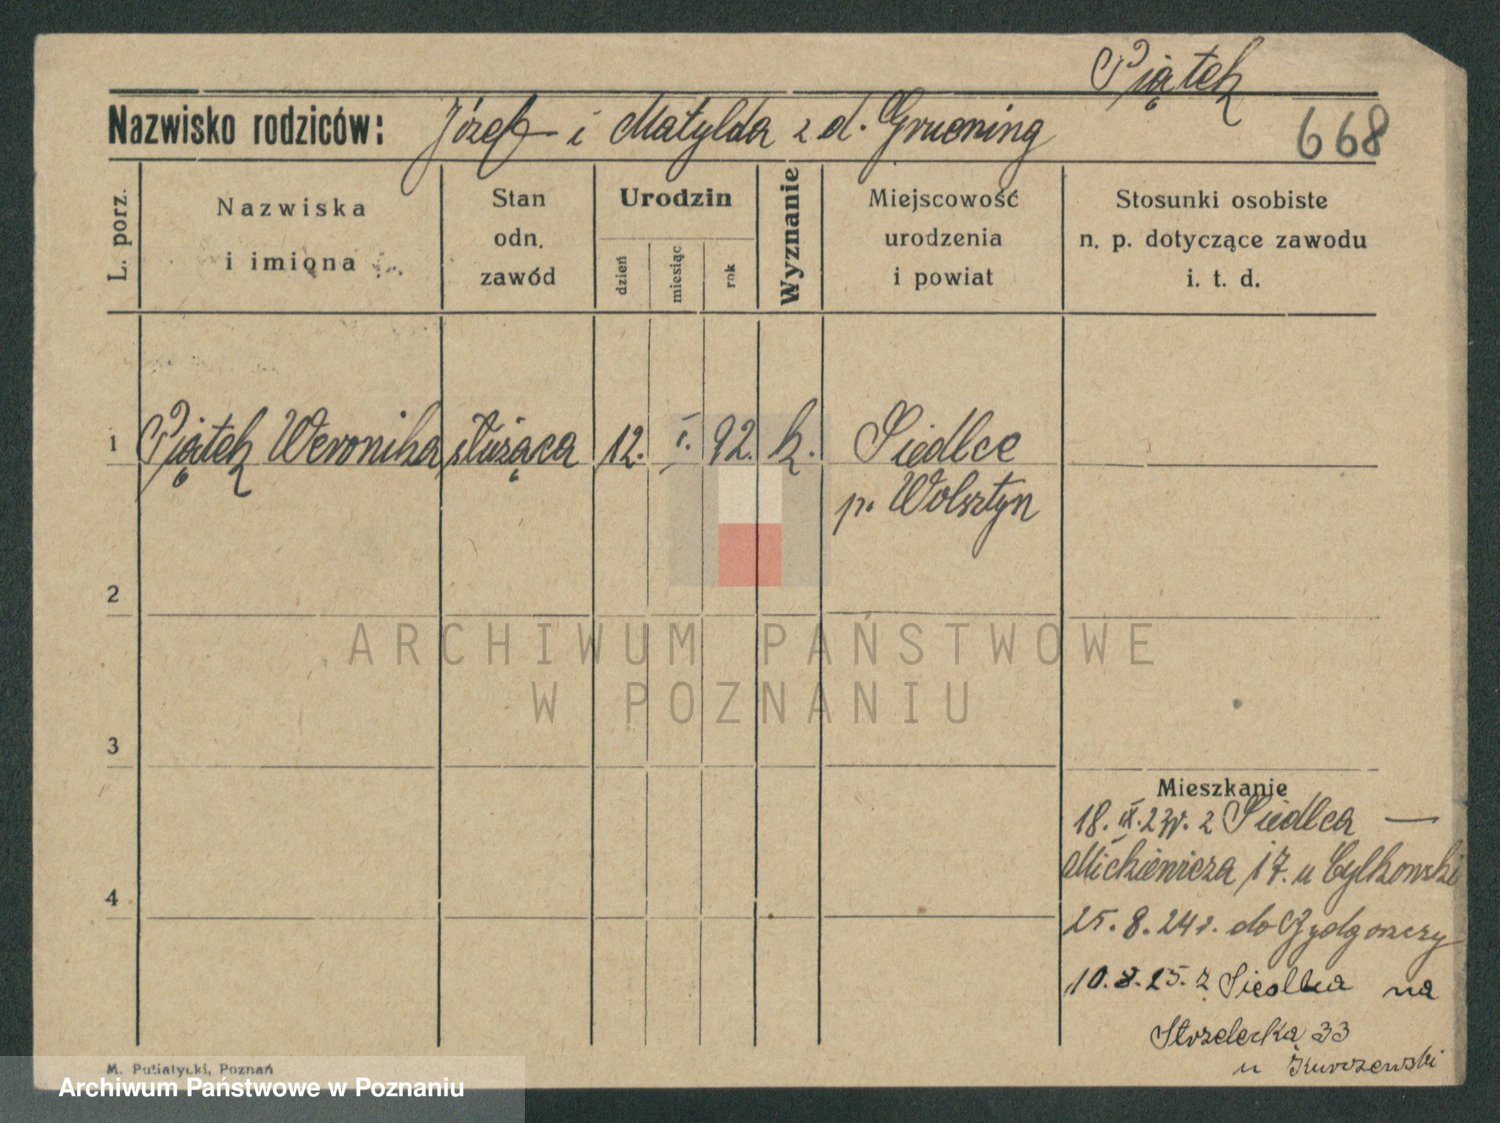 Piątek
Nazwisko rodziców: Józef i Matylda z d. Gruening
668
L. porz.
Nazwiska
i imiona
Stan
odn.
zawód
Urodzin
dzień
miesiąc
rok
Wyznanie
Miejscowość
urodzenia
i powiat
Stosunki osobiste
n. p. dotyczące zawodu
i. t. d.
1 Piątek Weronika służąca 12. I. 92. k. Siedlce
p. Wolsztyn
2
ARCHIWUM PAŃSTWOWE
W POZNANIU
3
Mieszkanie
18. IX. 23r. z Siedlca —
Mickiewicza 17. u Cylkowski
4
25. 8. 24 r. do Bydgoszczy
10. 8. 25. z Siedlca na
Strzelecka 33
u
M. Putiatycki, Poznań
Archiwum Państwowe w Poznaniu